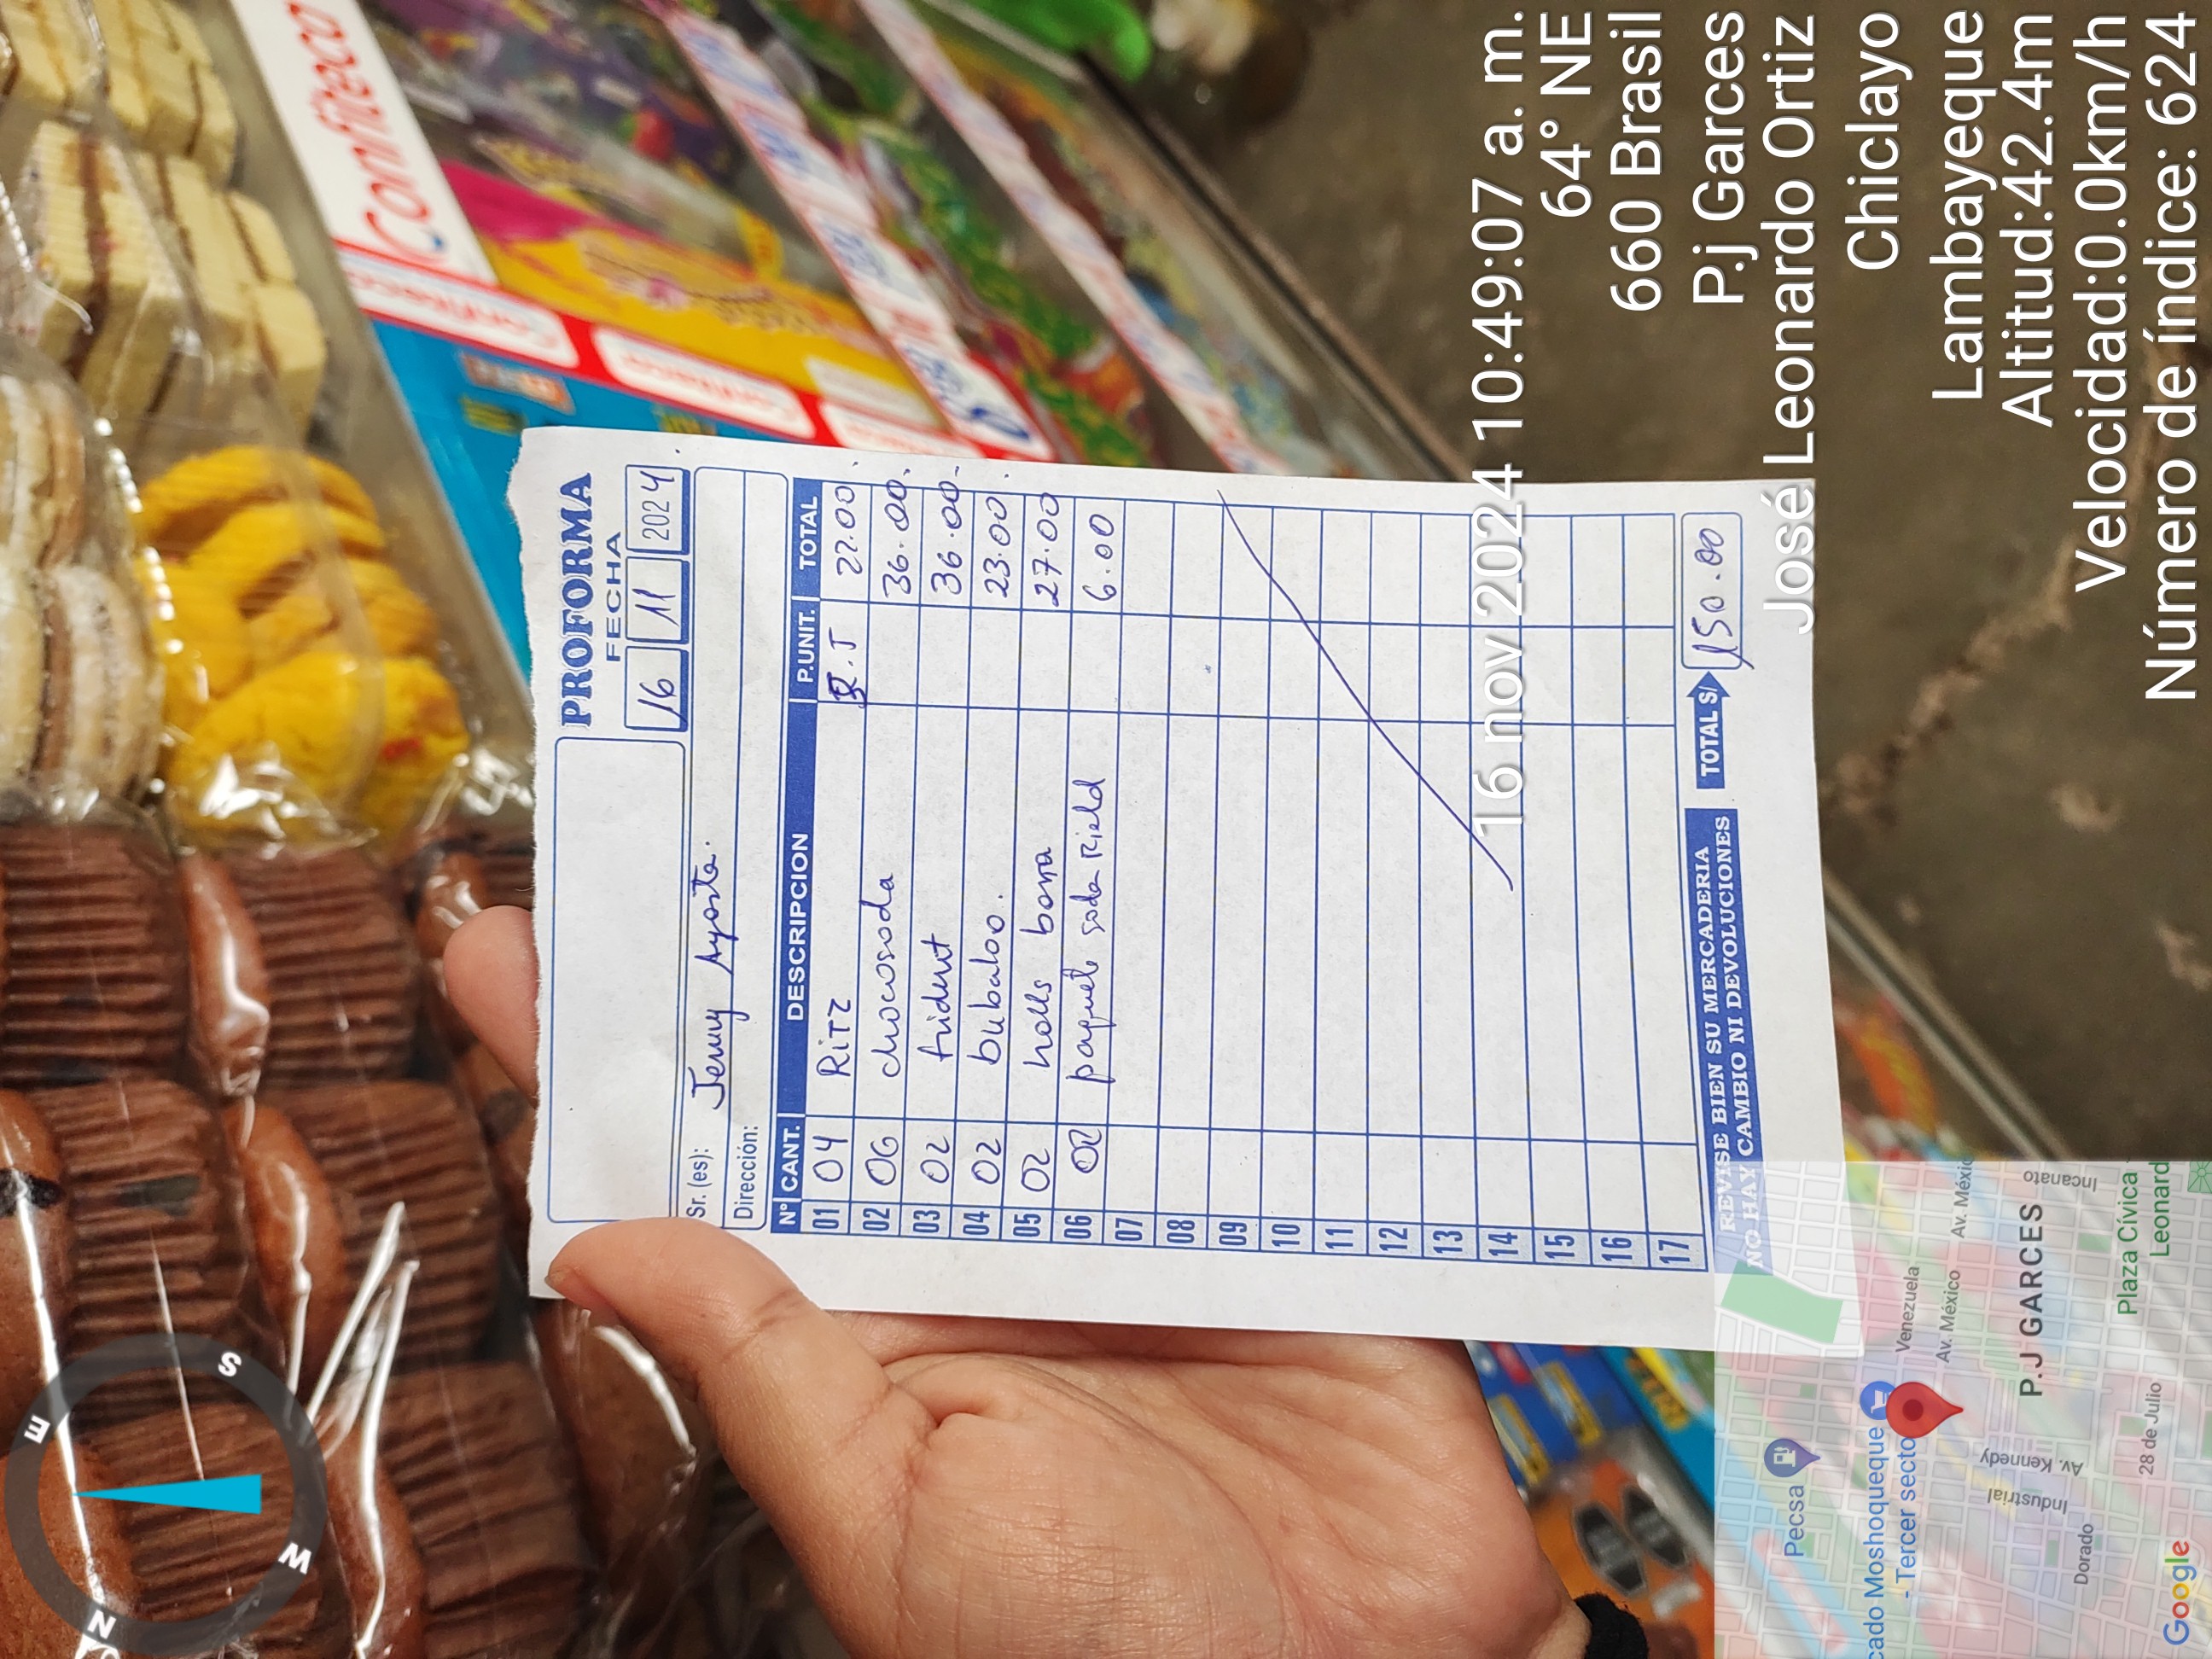 N
E
S
W
Confiteca
PROFORMA
FECHA
16 11 2024
Sr. (es): Jenny Ayasta.
Dirección:
N° CANT. DESCRIPCION P.UNIT. TOTAL
01 04 Ritz 5.5 22.00
02 06 chocosoda 36.00
03 02 trident 36.00
04 02 bubaloo. 23.00
05 02 halls barra 27.00
06 02 paquete soda Rield 6.00
07
08
09
10
11
12
13
14
15
16
17
REVISE BIEN SU MERCADERIA
NO HAY CAMBIO NI DEVOLUCIONES
TOTAL S/ 150.00
16 nov 2024 10:49:07 a. m.
64° NE
660 Brasil
P.j Garces
José Leonardo Ortiz
Chiclayo
Lambayeque
Altitud:42.4m
Velocidad:0.0km/h
Número de índice: 624
Pecsa
cado Moshoqueque
- Tercer secto
Venezuela
Av. México
Av. Méxic
Industrial
Av. Kennedy
P.J GARCES
Incanato
Dorado
28 de Julio
Plaza Cívica
Leonard
Google